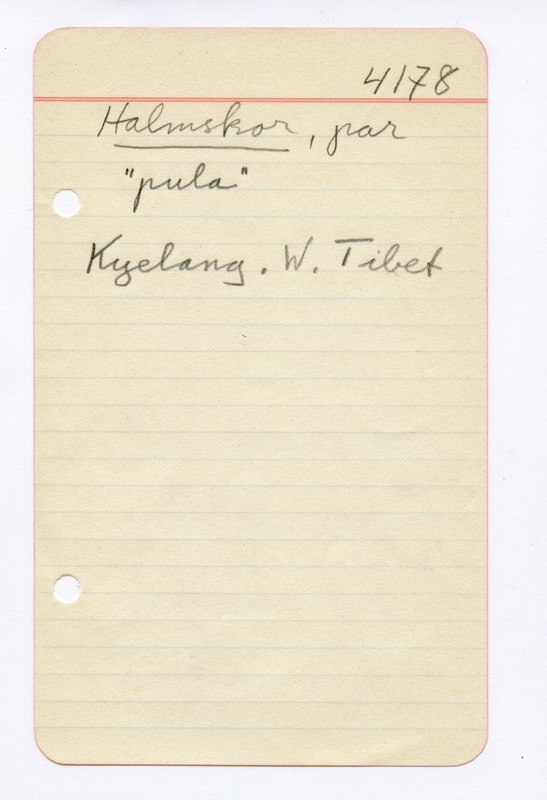 4178
Halmskor, par
"pula"
Kyelang. W. Tibet